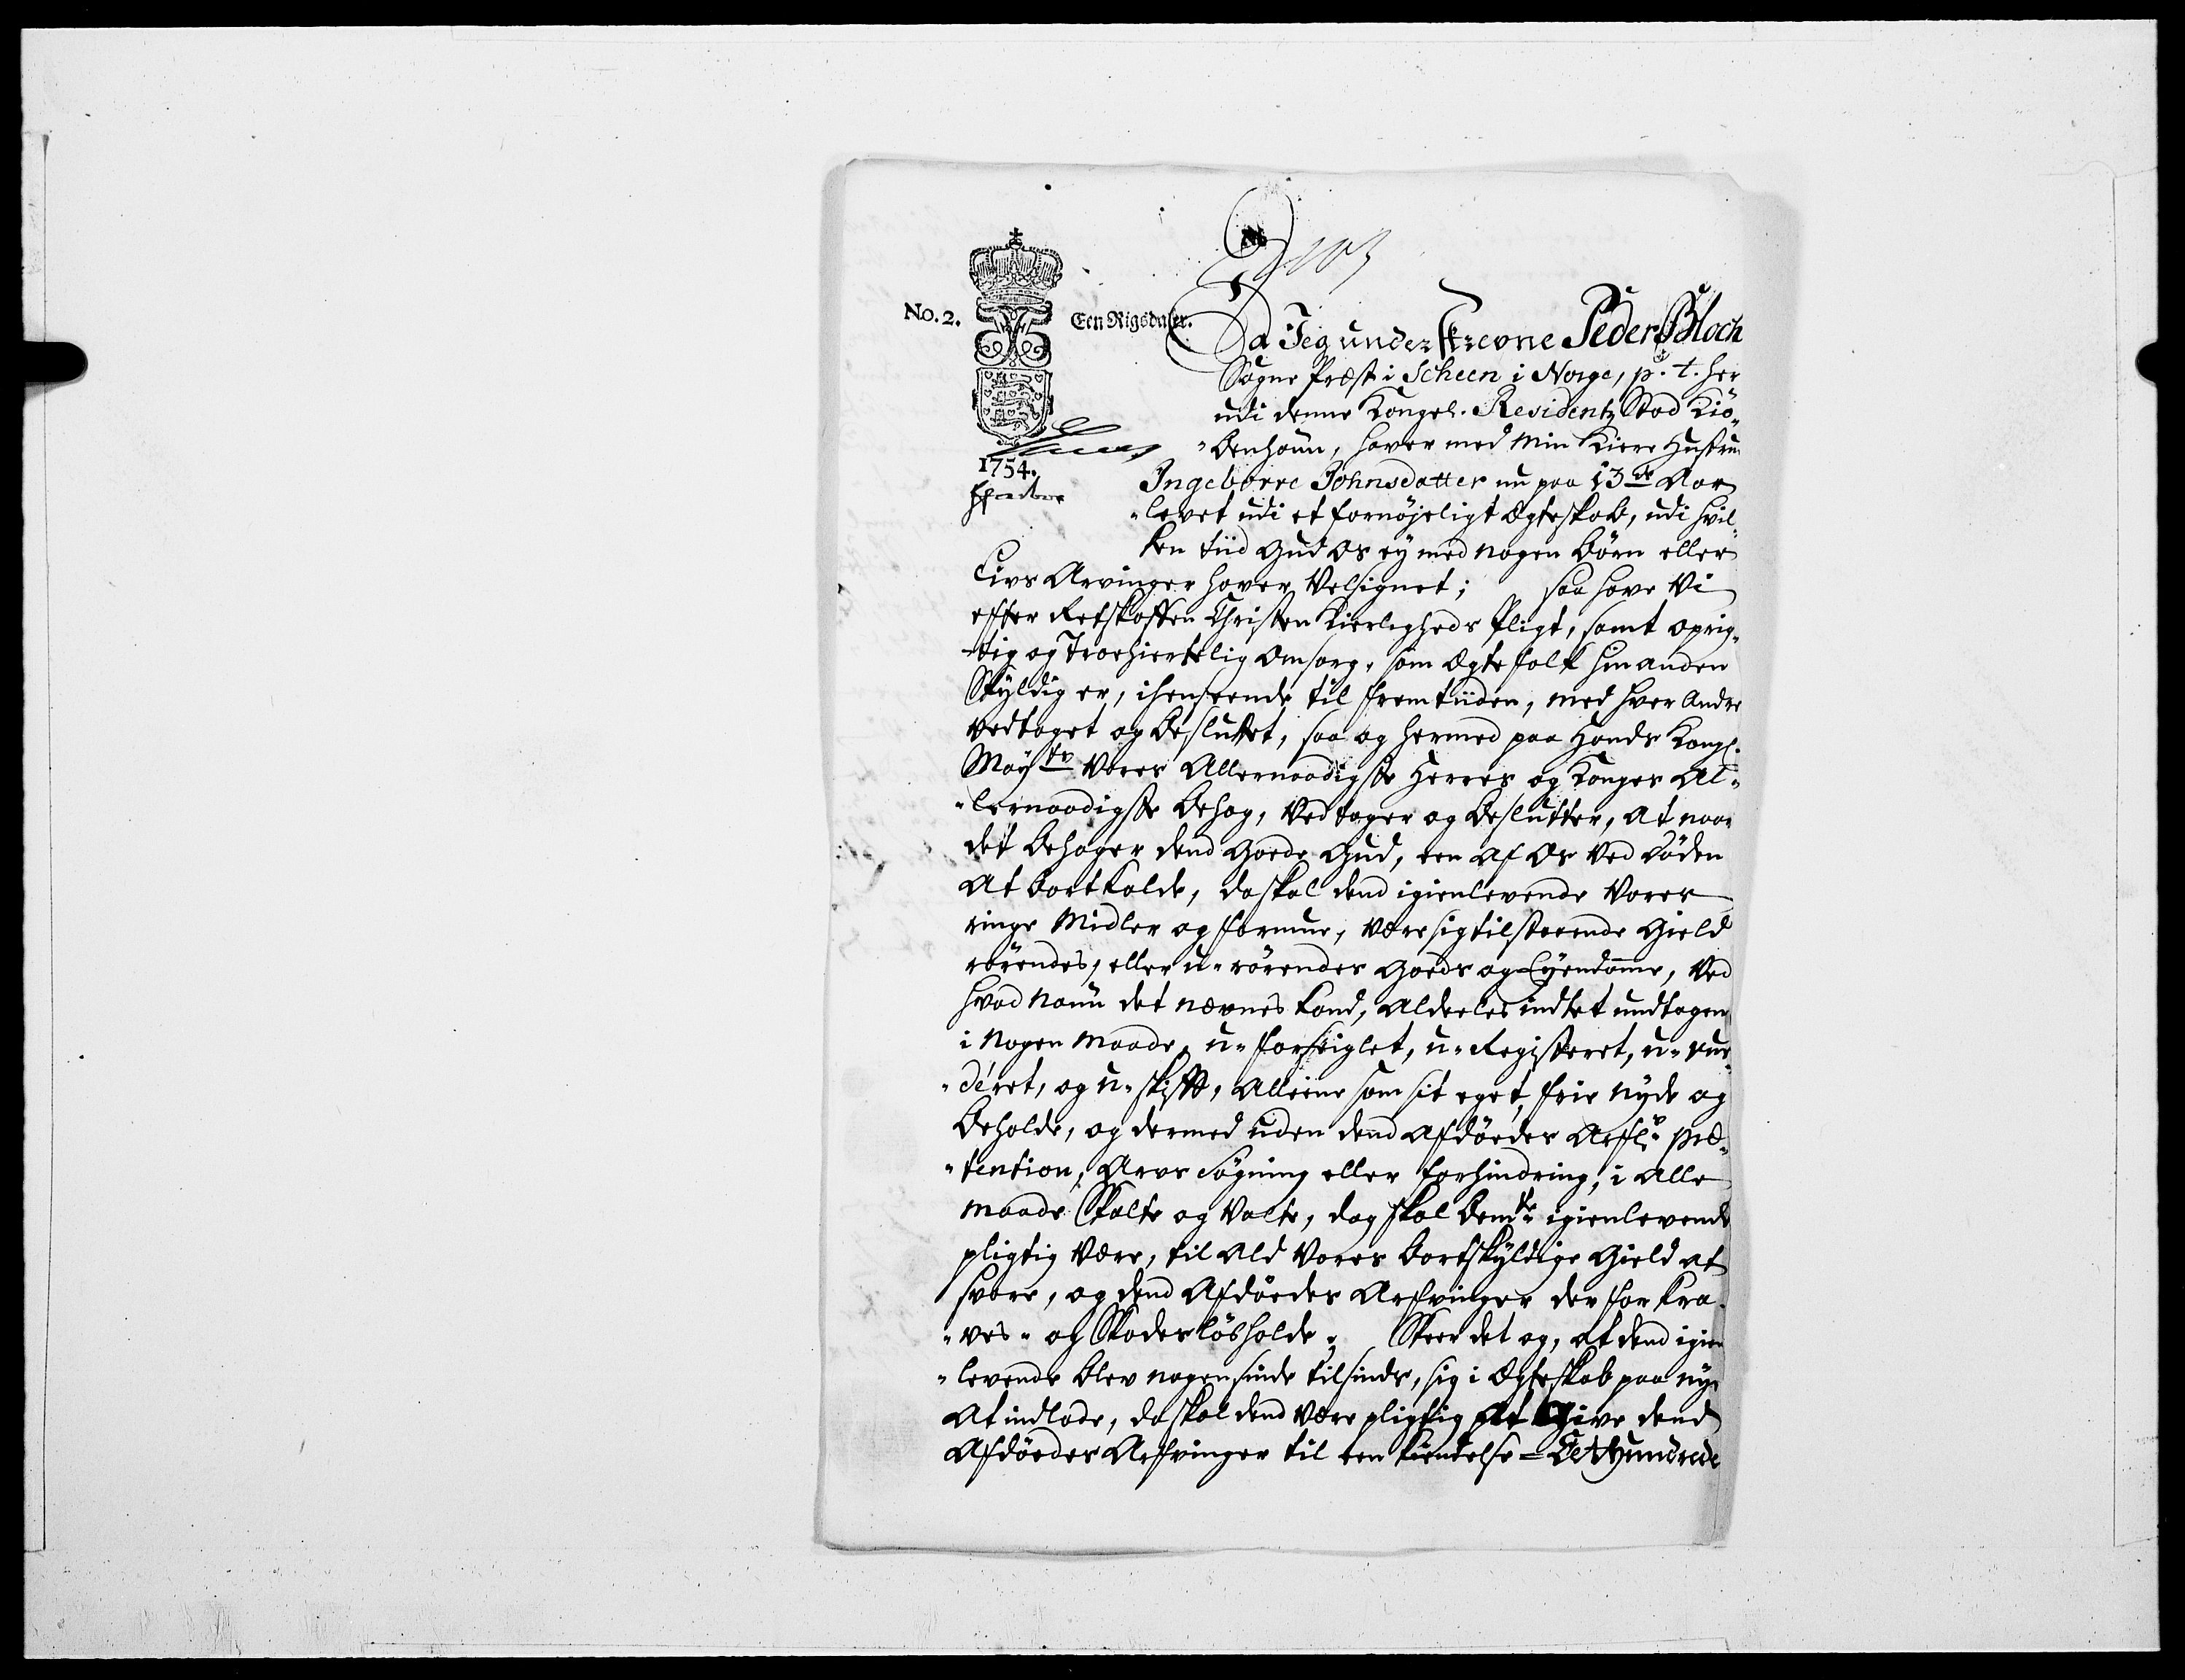 No. 2.
Een Rigsdaler.
1754.
Da Jeg underskrevne Peder Bloch
Sogne Præst i Scheen i Norge, p. t. her
udi denne Kongel. Residentz Stad Kiö-
-benhaun, haver med min Kiere Hustrue
Ingeborre Johnsdatter nu paa 13de Aar
-levet udi et fornöjeligt Ægteskab, udi hvil-
ken tiid Gud Os ey med nogen Börn eller
Livs Arvinger haver Velsignet; saa have Vi
efter Retskaffen Christen Kierligheds Pligt, samt oprig-
-tig og Troehiertelig Omsorg, som Ægtefolk hinanden
Skyldig er, i henseende til fremtiiden, med hver Andre
vedtaget og besluttet, saa og hermed paa Hands Kongl.
Mayts Vores Allernaadigste Herres og Konges Al-
-lernaadigste Behag, Vedtager og beslutter, At naar
det behager dend Goede Gud, een af Os Ved Döden
At bortkalde, da skal dend igienlevende Vores
ringe Midler og formue, være sig tilstaaende Gield
rörendes, eller u-rörendes Goeds og Eyendomme, Ved
hvad Navn det nævnes kand, Aldeeles indtet undtagen
i Nogen Maade, u-forseiglet, u-Registeret, u-vur-
-déret, og u-skifft, Alleene som sit eget, frie nyde og
beholde, og dermed uden dend afdöedes Arfl. præ-
-tention, Arvs Sögning eller forhindring, i Alle
maade Skalte og Valte, dog skal bemte igienlevende
pligtig Være, til Ald Vores bortskyldige Gield at
svare, og dend Afdöedes Arfvinger der for kra-
-ves- og Skadeslös holde; Skeer det og, at dend igien
-levende blev nogensinde tilsinds, sig i Ægteskab paa nye
At indlade, da skal dend Være pligtig At Give dend
Afdöedes Arfvinger til een kiendelse = Et Hundrede